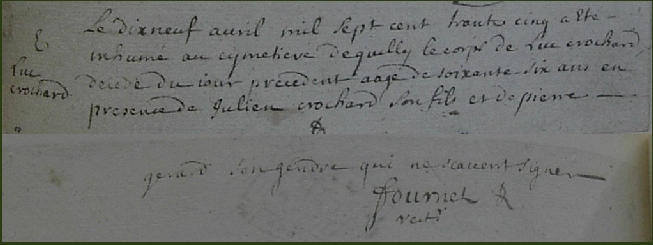 Le dixneuf avril mil sept cent trente cinq a Ete
inhumé au cymetiere de quilly le corps de Luc crochard
Luc
crochard
decedé du iour precedent aagé de soixante six ans en
presence de Julien crochard son fils et de pierre
gerard son gendre qui ne scavent signer
fournet
rect^r